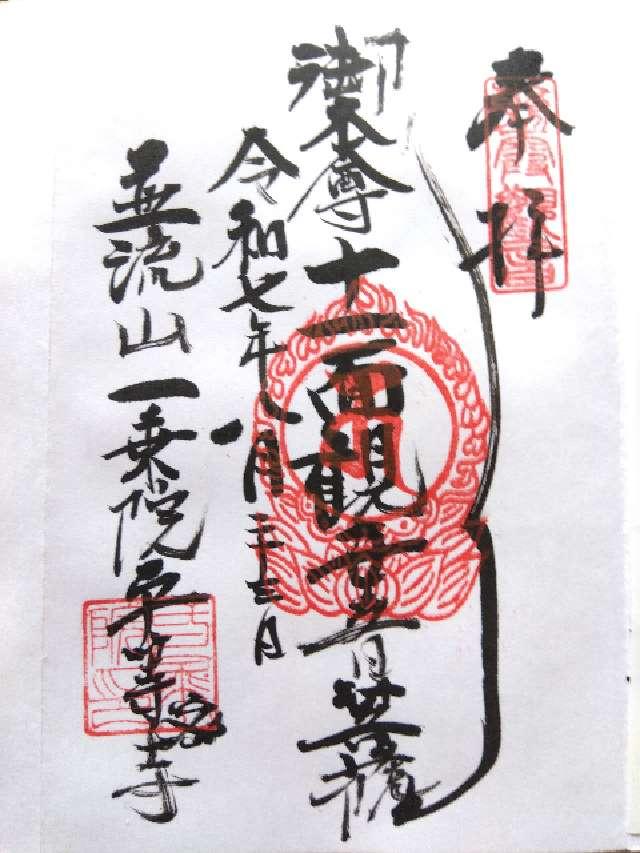 奉拝
御本尊十一面観世音菩薩
令和七年八月二十三日
並流山一乗院平等寺